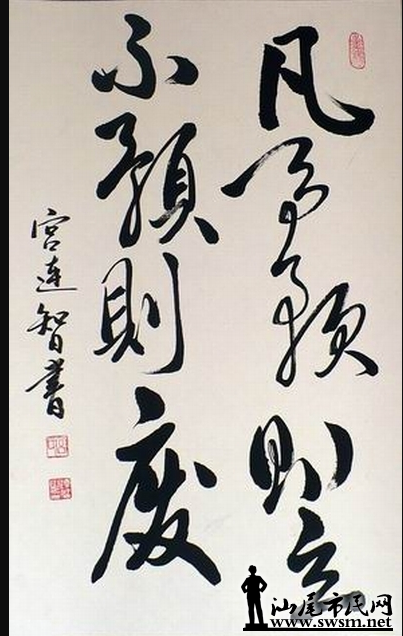 凡事预则立
不預則廢
宫连智書
汕尾市民网
www.swsm.net